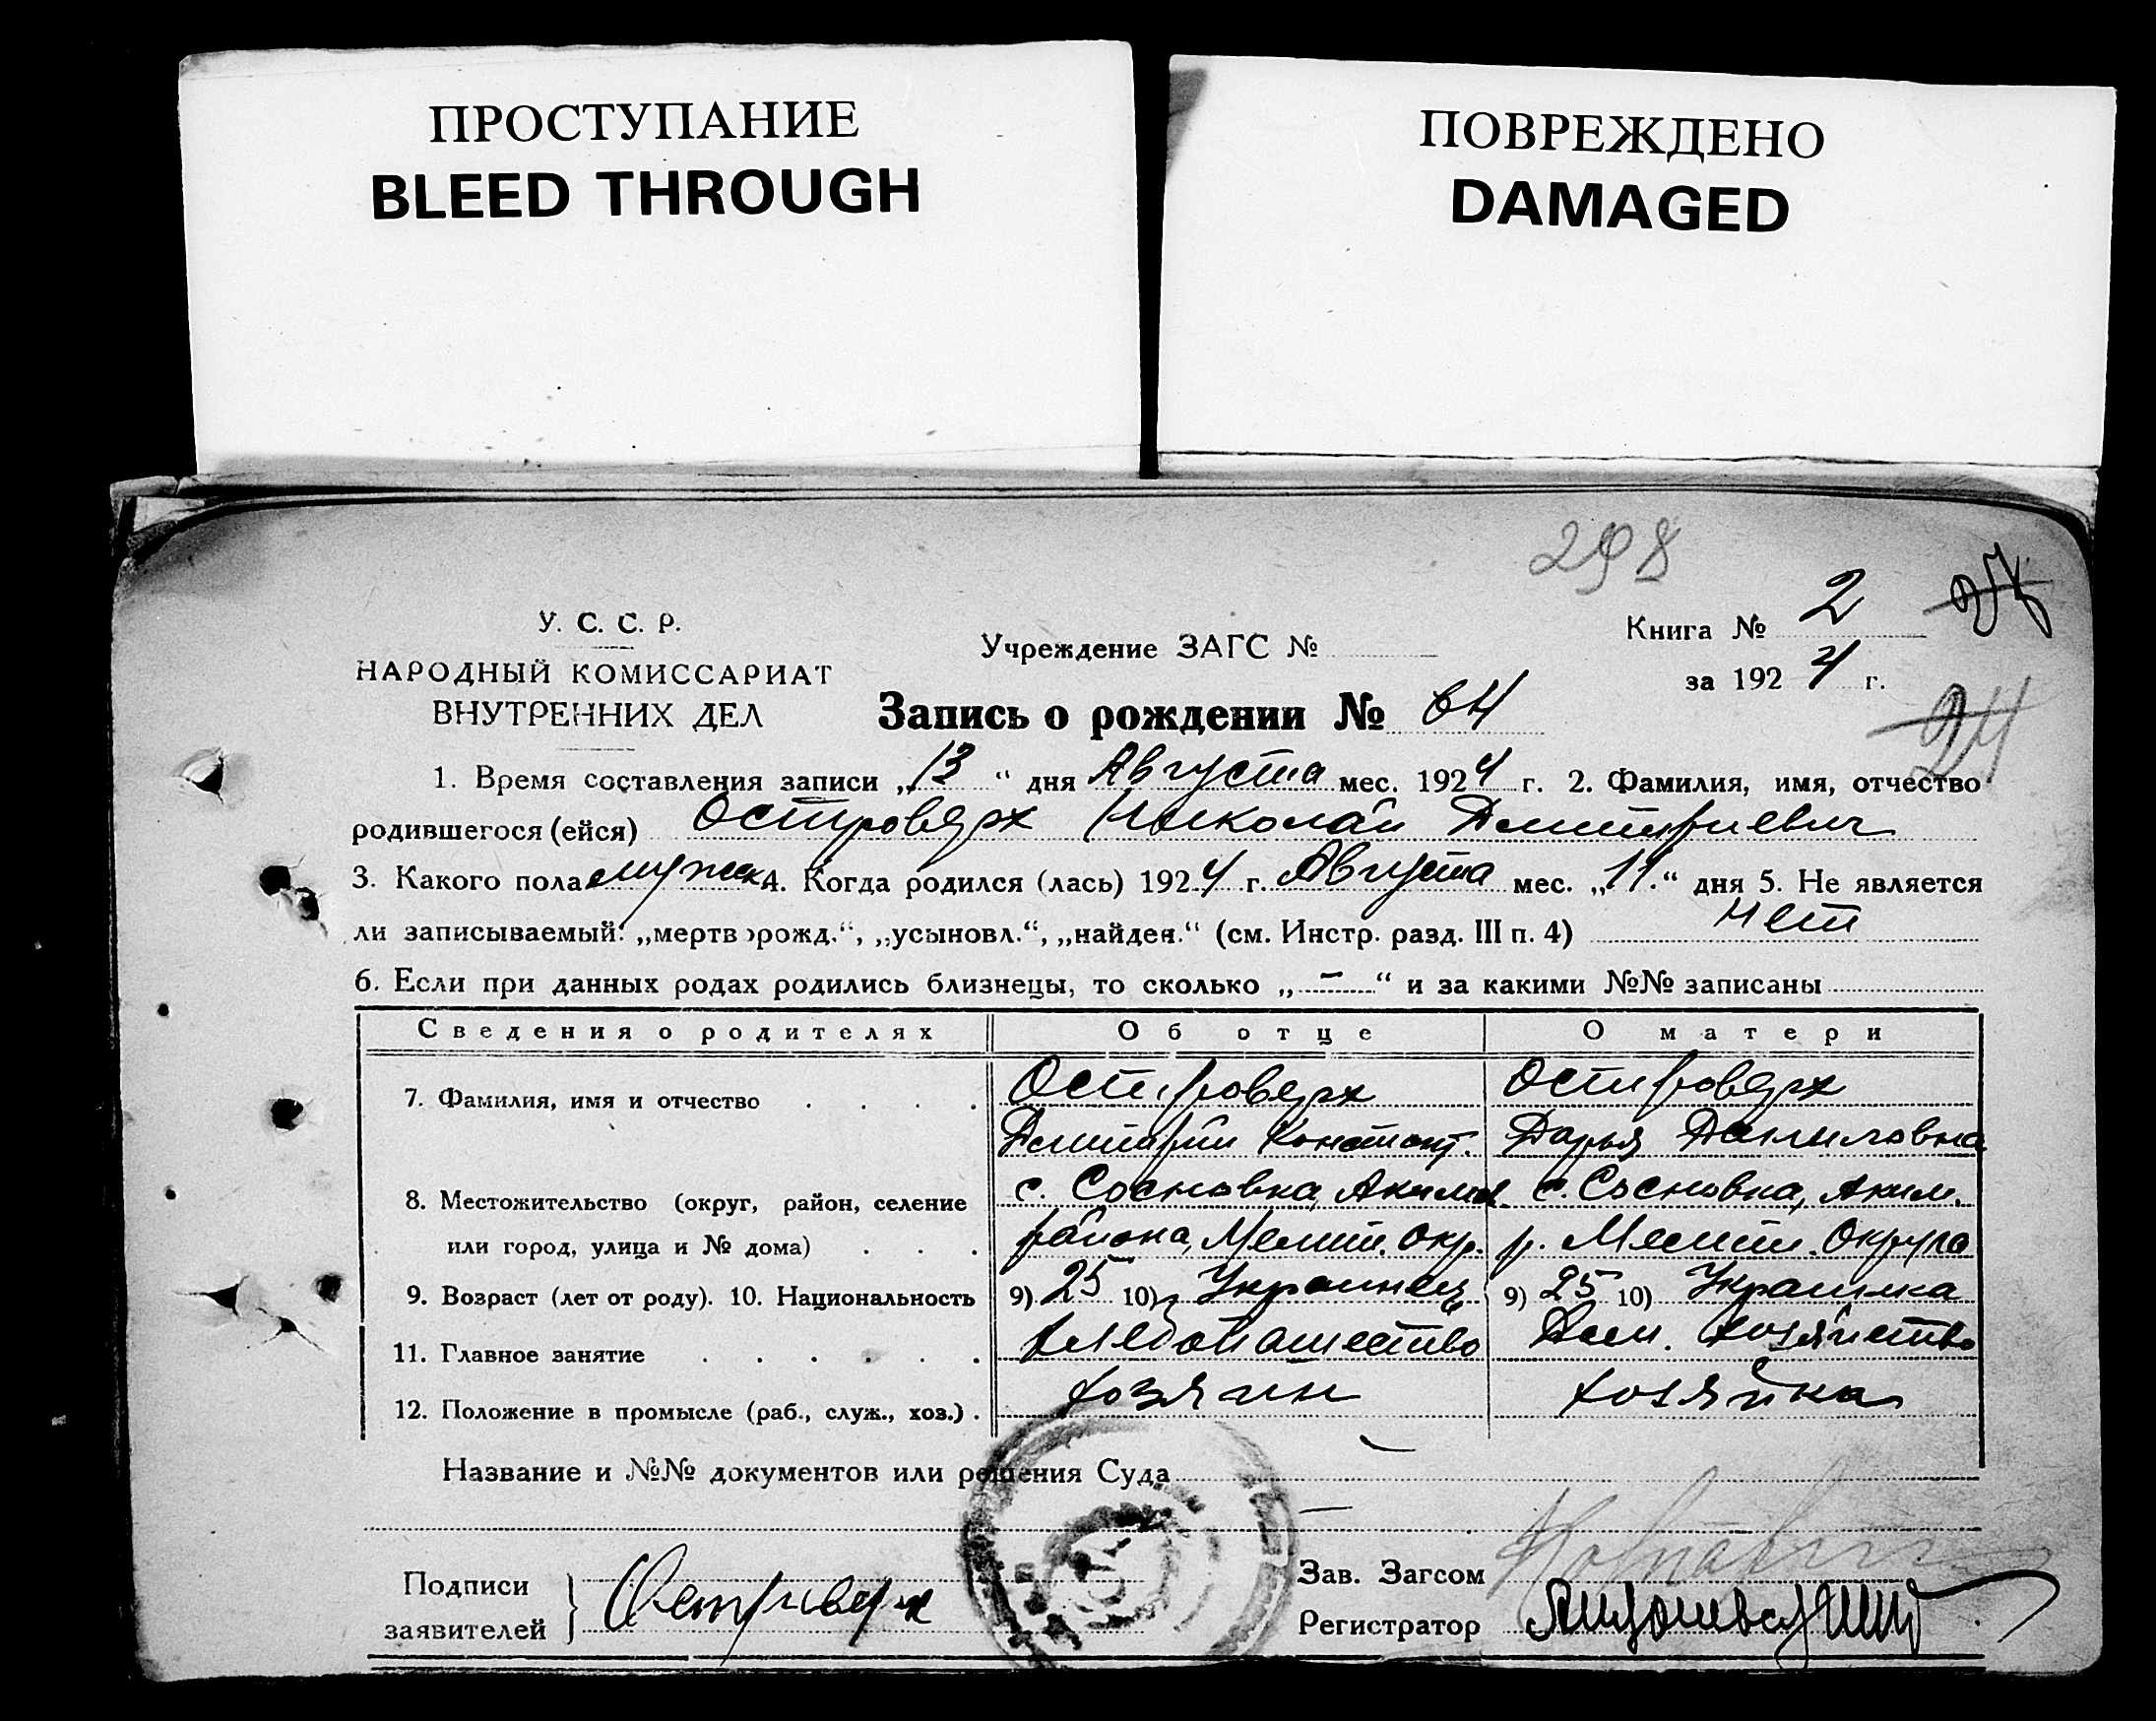 ПРОСТУПАНИЕ
BLEED THROUGH
ПОВРЕЖДЕНО
DAMAGED
298
У. С. С. Р.
НАРОДНЫЙ КОМИССАРИАТ
ВНУТРЕННИХ ДЕЛ
Учреждение ЗАГС №
Книга № 2
за 1924 г.
24
Запись о рождении № 64
1. Время составления записи „13“ дня Августа мес. 1924 г. 2. Фамилия, имя, отчество
родившегося (ейся) Островерх Николай Дмитриевич
3. Какого пола мужск 4. Когда родился (лась) 1924 г. Августа мес. „11.“ дня 5. Не является
ли записываемый: „мертворожд.“, „усыновл.“, „найден.“ (см. Инстр. разд. III п. 4) нет
6. Если при данных родах родились близнецы, то сколько „-“ и за какими №№ записаны
Сведения о родителях Об отце О матери
7. Фамилия, имя и отчество Островерх Островерх
Дмитрий Констант. Дарья Даниловна
8. Местожительство (округ, район, селение с. Сосновка, Аким. с. Сосновка, Аким.
или город, улица и № дома) района, Мелит. Окр. р. Мелит. Округа
9. Возраст (лет от роду). 10. Национальность 9) 25 10) Украинец 9) 25 10) Украинка
11. Главное занятие хлебопашество Дом. хозяйство
12. Положение в промысле (раб., служ., хоз.) хозяин хозяйка
Название и №№ документов или решения Суда —
—
Подписи
заявителей } Островерх
Зав. Загсом
Регистратор